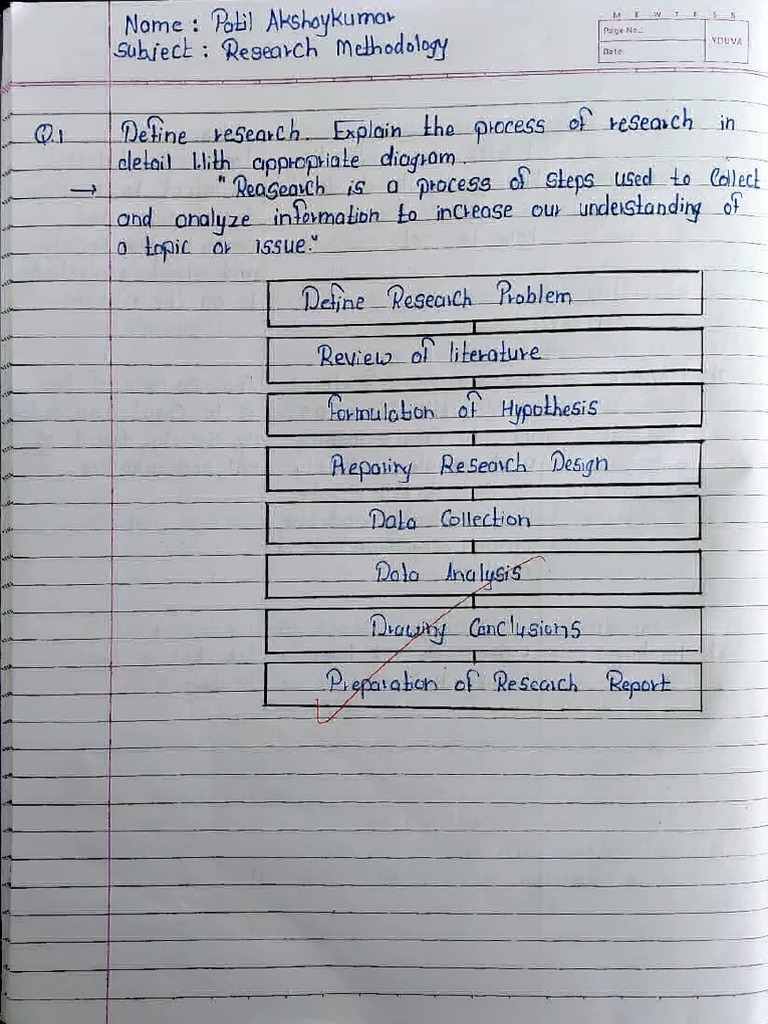 Name : Patil Akshaykumar
Subject : Research Methodology
M T W T F S S
Page No.:
Date:
YOUVA
Q.1 Define research. Explain the process of research in
detail With appropriate diagram.
→ "Reasearch is a process of steps used to Collect
and analyze information to increase our understanding of
a topic or issue."
Define Research Problem
Review of literature
Formulation of Hypothesis
Preparing Research Design
Data Collection
Data Analysis
Drawing Conclusions
Preparation of Research Report